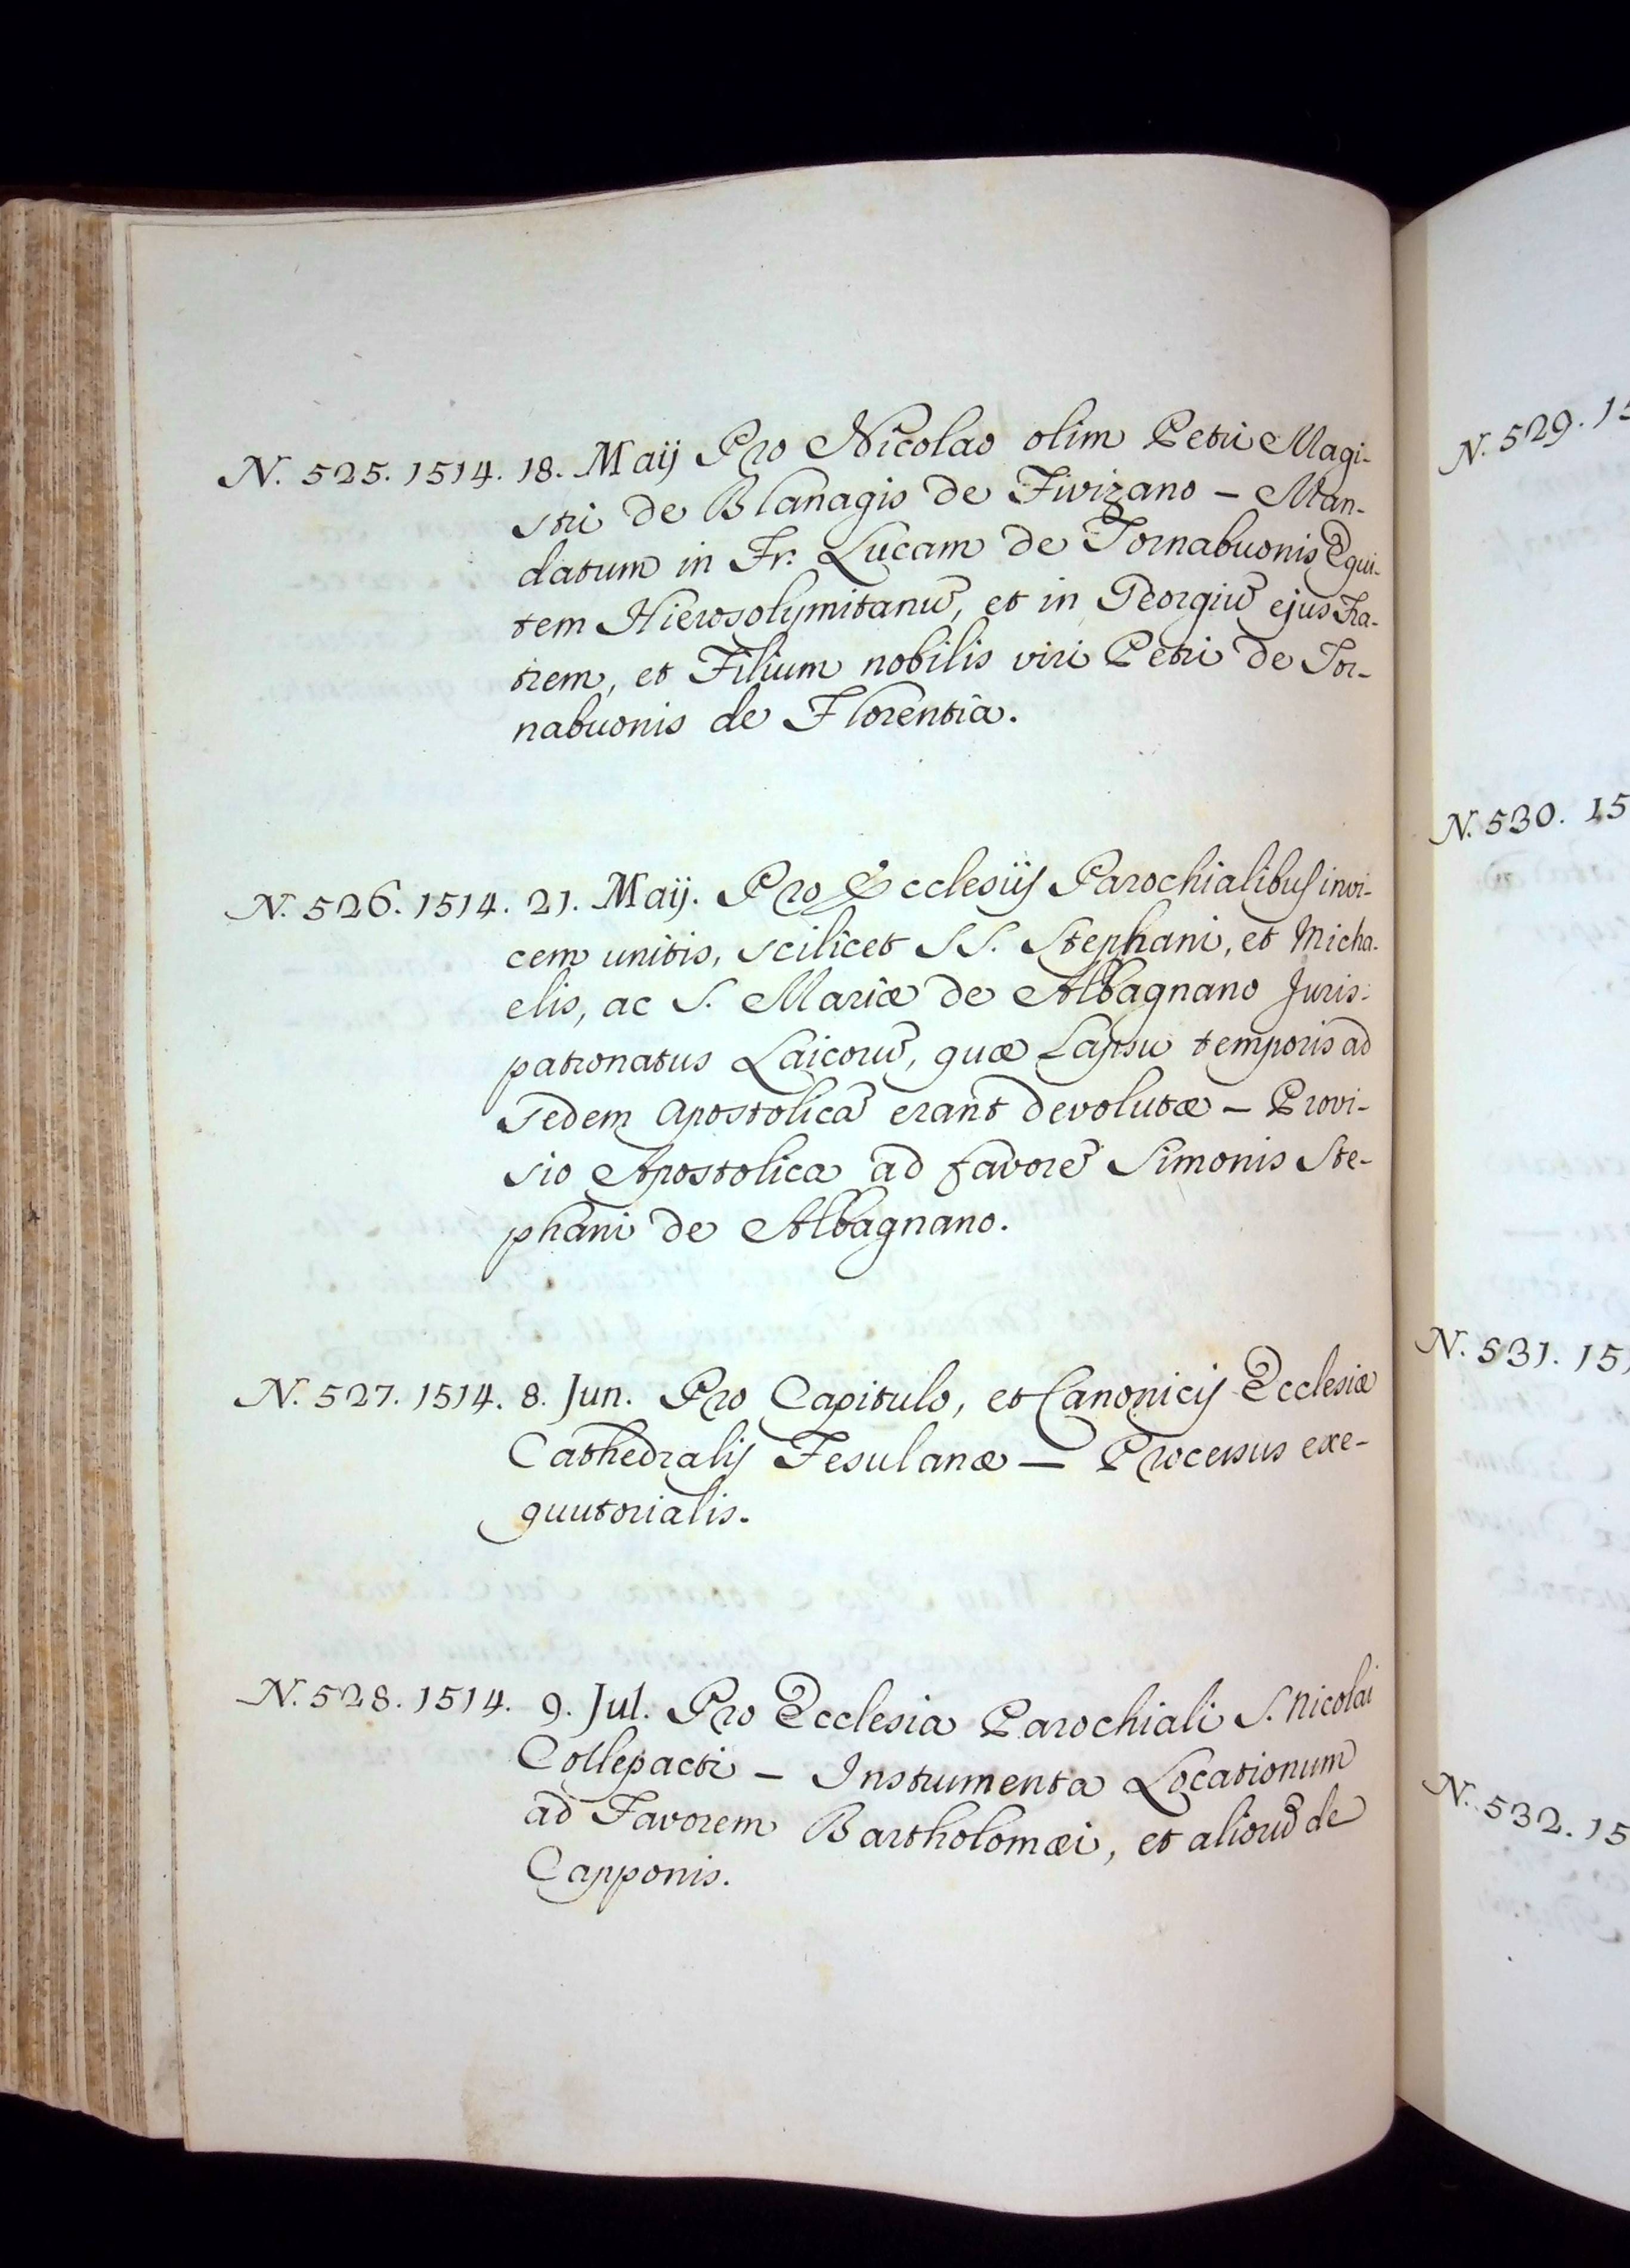 N. 525. 1514. 18. Maij Pro Nicolao olim Petri Magi-
stri de Blanagis de Fivizano – Man-
datum in Fr. Lucam de Tornabuonis Equi-
tem Hierosolymitanu͂, et in Georgiu͂ ejus Fra-
trem, et Filium nobilis viri Petri de Tor-
nabuonis de Florentia.
N. 526. 1514. 21. Maij. Pro Ecclesiis Parochialibus invi-
cem unitis, scilicet SS. Stephani, et Micha-
elis, ac S. Mariæ de Albagnano Juris-
patronatus Laicoru͂, quæ Lapsu temporis ad
Sedem Apostolica͂ erant devolutæ – Provi-
sio Apostolica ad favore͂ Simonis Ste-
phani de Albagnano.
N. 527. 1514. 8. Jun. Pro Capitulo, et Canonicis Ecclesiæ
Cathedralis Fesulanæ – Processus exe-
quutorialis.
N. 528. 1514. 9. Jul. Pro Ecclesia Parochiali S. Nicolai
Collepacti – Instrumenta Locationum
ad Favorem Bartholomæi, et alioru͂ de
Capponis.
N. 529. 15
N. 530. 15
N. 531. 15
N. 532. 15